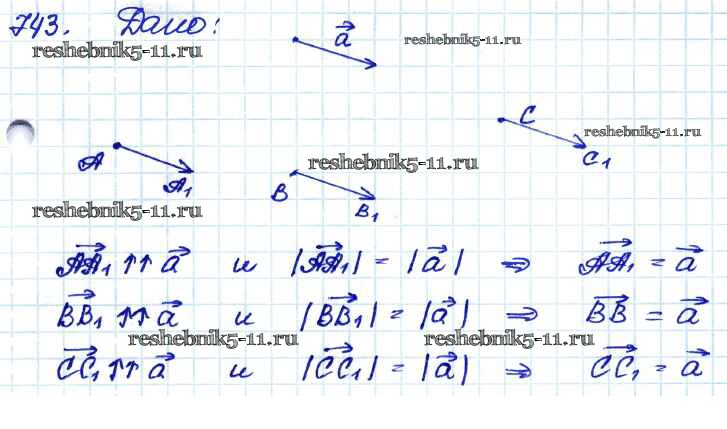 743. Дано:
a⃗
reshebnik5-11.ru
reshebnik5-11.ru
C
reshebnik5-11.ru
A
reshebnik5-11.ru
C₁
A₁
B
B₁
reshebnik5-11.ru
AA₁⃗ ↑↑ a⃗ и |AA₁⃗| = |a⃗| ⇒ AA₁⃗ = a⃗
BB₁⃗ ↑↑ a⃗ и |BB₁⃗| = |a⃗| ⇒ BB⃗ = a⃗
reshebnik5-11.ru reshebnik5-11.ru
CC₁⃗ ↑↑ a⃗ и |CC₁⃗| = |a⃗| ⇒ CC₁⃗ = a⃗